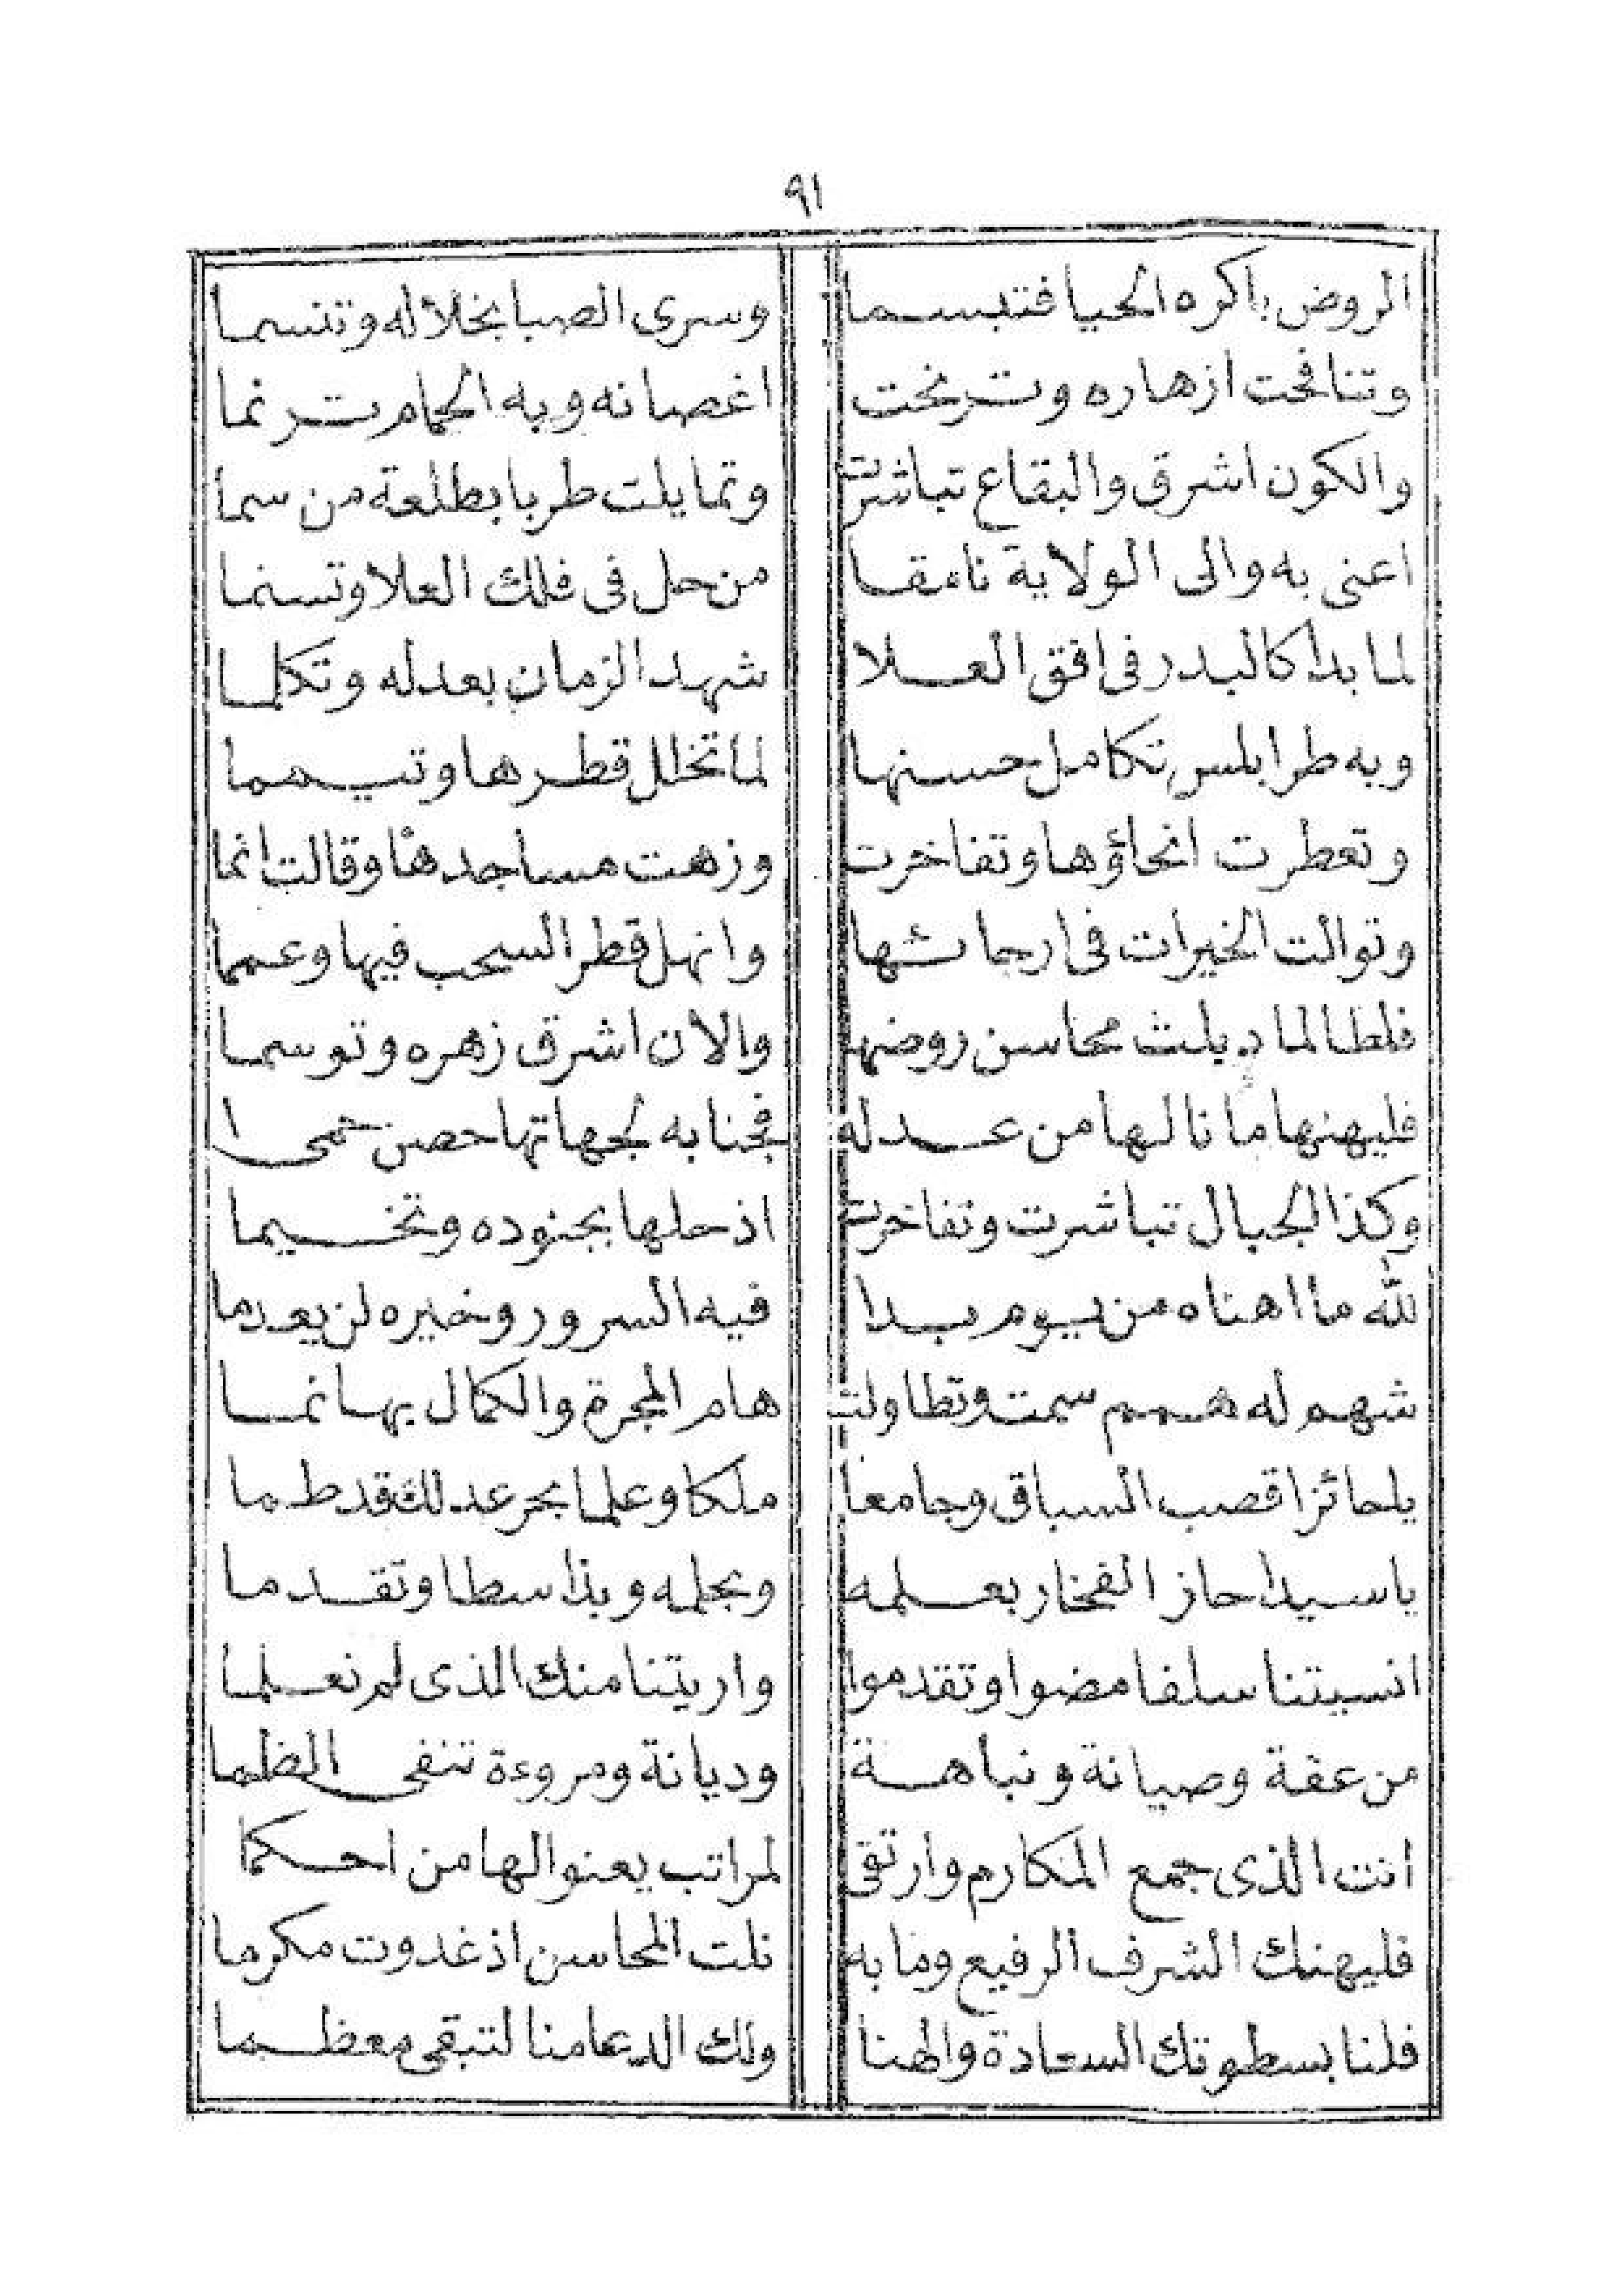 ٩١
الروض باكره الحيا فتبسما وسرى الصبا بخلاله وتنسما
وتنافحت ازهاره وترنحت اغصانه وبه الحمام ترنما
والكون اشرق والبقاع تباشرت وتمايلت طربا بطلعة من سما
اعنى به والى الولاية نامقا من حل فى فلك العلا وتسنما
لما بدا كالبدر فى افق العلا شهد الزمان بعدله وتكلما
وبه طرابلس تكامل حسنها لما تخلل قطرها وتيمما
وتعطرت انحاؤها وتفاخرت وزهت مساجدها وقالت انما
وتوالت الخيرات فى ارجائها وانهل قطر السحب فيها وعمما
فلطالما ذبلت محاسن روضها والان اشرق زهره وتوسما
فليهنها ما نالها من عدله فجنابه لجهاتها حصن حمى
وكذا الجبال تباشرت وتفاخرت اذ حلها بجنوده وتخيما
لله ما اهناه من يوم بدا فيه السرور وخيره لن يعدما
شهم له همم سمت وتطاولت هام المجرة والكمال بها نما
يا حائزا قصب السباق وجامعا ملكا وعلما بحر عدلك قد طما
يا سيدا حاز الفخار بعلمه وبحلمه وبذا سطا وتقدما
انسيتنا سلفا مضوا وتقدموا واريتنا منك الذى لم نعلما
من عفة وصيانة ونباهة وديانة ومروءة تنفى الظما
انت الذى جمع المكارم وارتقى لمراتب يعنوا لها من احكما
فليهنك الشرف الرفيع وما به نلت المحاسن اذ غدوت مكرما
فلنا بسطوتك السعادة والهنا ولك الدعا منا لتبقى معظما